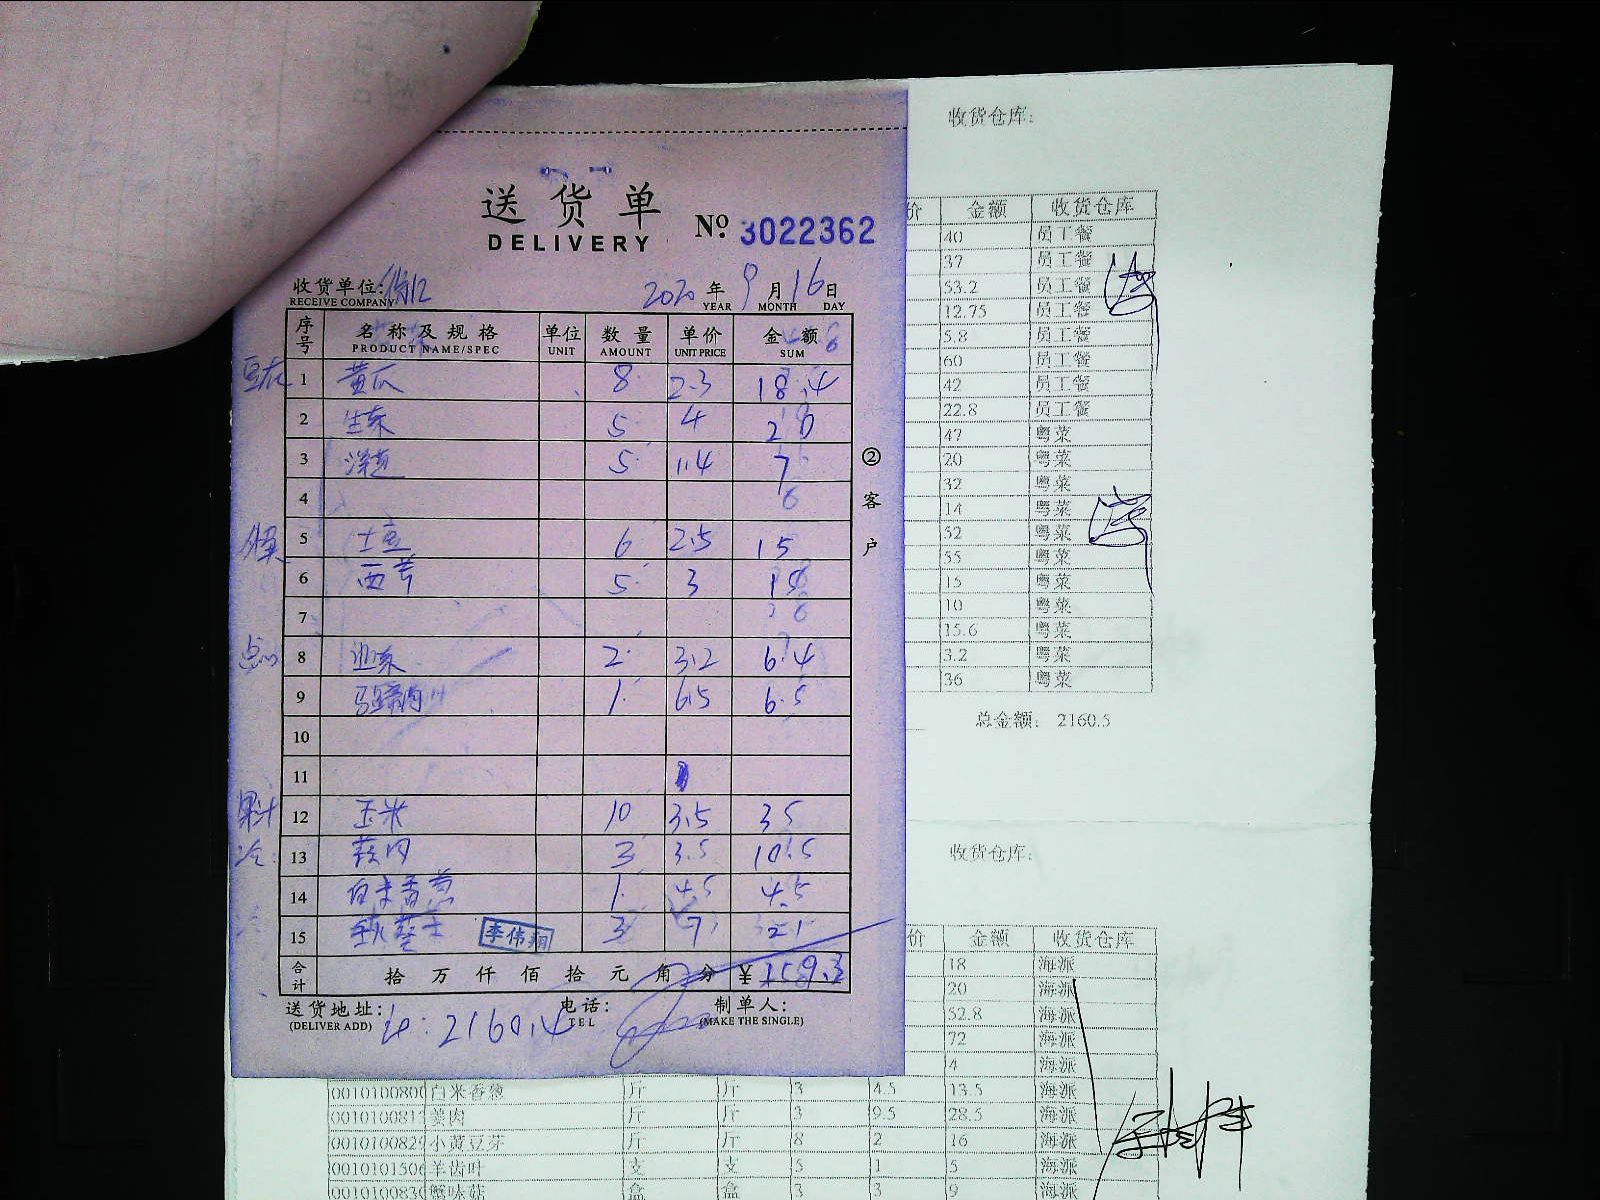 送货单
DELIVERY
№ 3022362
收货单位:
RECEIVE COMPANY
2020 年 9 月 16 日
YEAR MONTH DAY
序号 名称及规格 单位 数量 单价 金额
PRODUCT NAME/SPEC UNIT AMOUNT UNIT PRICE SUM
1 黄瓜 8 2.3 18.4
2 生菜 5 4 20
3 洋葱 5 1.4 7
4
5 土豆 6 2.5 15
6 西芹 5 3 15
7
点心 8 2 3.2 6.4
9 马蹄肉 1 6.5 6.5
10
11
果汁 12 玉米 10 3.5 35
冷 13 蒜肉 3 3.5 10.5
14 白米香葱 1 4.5 4.5
15 3 7 21
李伟翔
合计 拾 万 仟 佰 拾 元 角 分 ¥ 159.3
送货地址: 电话: 制单人:
(DELIVER ADD) TEL (MAKE THE SINGLE)
2160.4
②客户
收货仓库:
价 金额 收货仓库
40 员工餐
37 员工餐
53.2 员工餐
12.75 员工餐
5.8 员工餐
60 员工餐
42 员工餐
22.8 员工餐
47 粤菜
20 粤菜
32 粤菜
14 粤菜
52 粤菜
55 粤菜
15 粤菜
10 粤菜
15.6 粤菜
3.2 粤菜
36 粤菜
总金额: 2160.5
收货仓库:
价 金额 收货仓库
18 海派
20 海派
52.8 海派
72 海派
4 海派
白米香葱 斤 斤 3 4.5 13.5 海派
姜肉 斤 斤 3 9.5 28.5 海派
小黄豆芽 斤 斤 8 2 16 海派
羊齿叶 支 支 5 1 5 海派
蟹味菇 盒 盒 3 3 9 海派